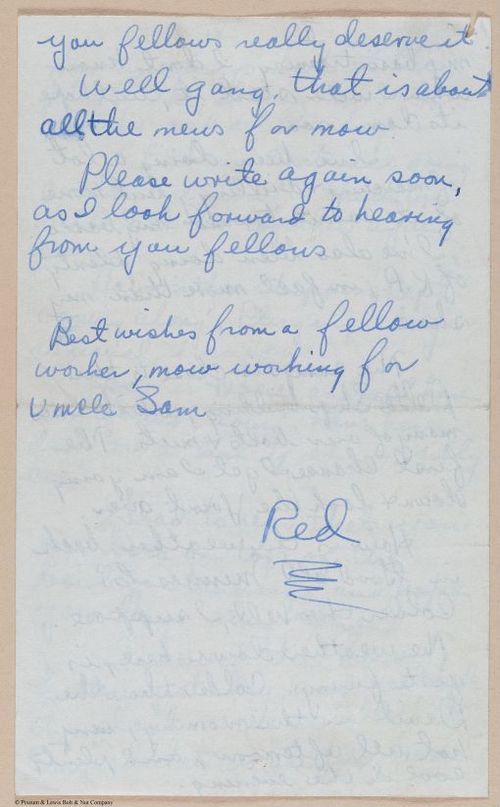 you fellows really deserve it
Well gang, that is about
all the news for now.
Please write again soon,
as I look forward to hearing
from you fellows
Best wishes from a fellow
worker, now working for
Uncle Sam
Red
© Pheaum & Lewis Bolt & Nut Company